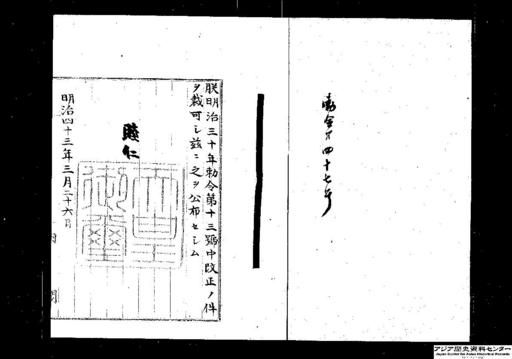 勅令第四十七号
朕明治三十年勅令第十三號中改正ノ件
ヲ裁可シ茲ニ之ヲ公布セシム
睦仁
天皇御璽
明治四十三年三月二十六日
内閣
アジア歴史資料センター
Japan Center for Asian Historical Records